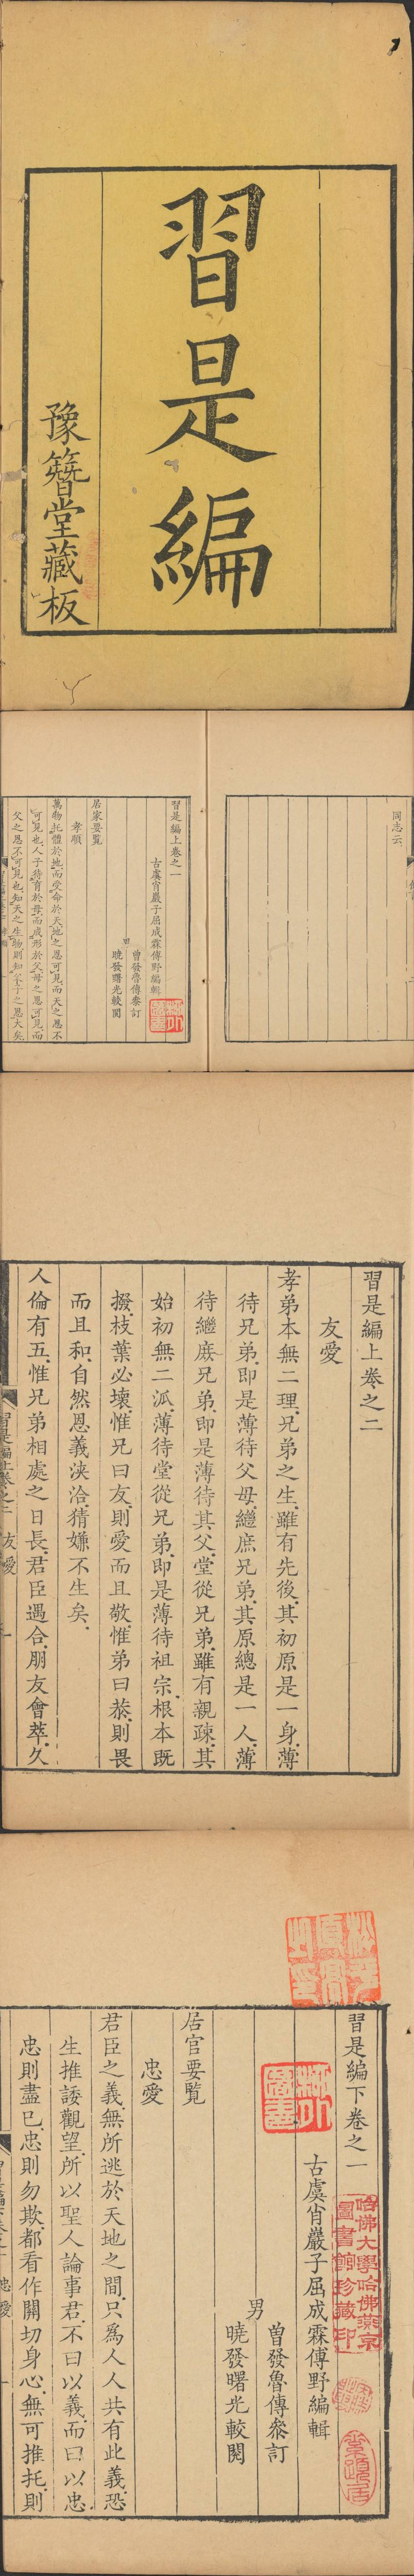 習是編
豫簪堂藏板
同志云
習是編上卷之一
古虞肖巖子屈成霖傅野編輯
男
曾發魯傳叅訂
曉發曙光較閱
居家要覽
孝順
萬物托體於地而受命於天地之恩可見而天之恩不
可見也人子待育於母而成形於父母之恩可見而
父之恩不可見也知天之生物則知父子之恩大矣
習是編上卷之二
友愛
孝弟本無二理兄弟之生雖有先後其初原是一身薄
待兄弟即是薄待父母繼庶兄弟其原總是一人薄
待繼庶兄弟即是薄待其父堂從兄弟雖有親疎其
始初無二派薄待堂從兄弟即是薄待祖宗根本既
撥枝葉必壞惟兄曰友則愛而且敬惟弟曰恭則畏
而且和自然恩義浹洽猜嫌不生矣
人倫有五惟兄弟相處之日長君臣遇合朋友會萃久
習是編上卷之二 友愛 一
習是編下卷之一
古虞肖巖子屈成霖傅野編輯
男
曾發魯傳叅訂
曉發曙光較閱
居官要覽
忠愛
君臣之義無所逃於天地之間只為人人共有此義恐
生推諉觀望所以聖人論事君不曰以義而曰以忠
忠則盡已忠則勿欺都看作關切身心無可推托則
哈佛大學哈佛燕京
圖書館珍藏印